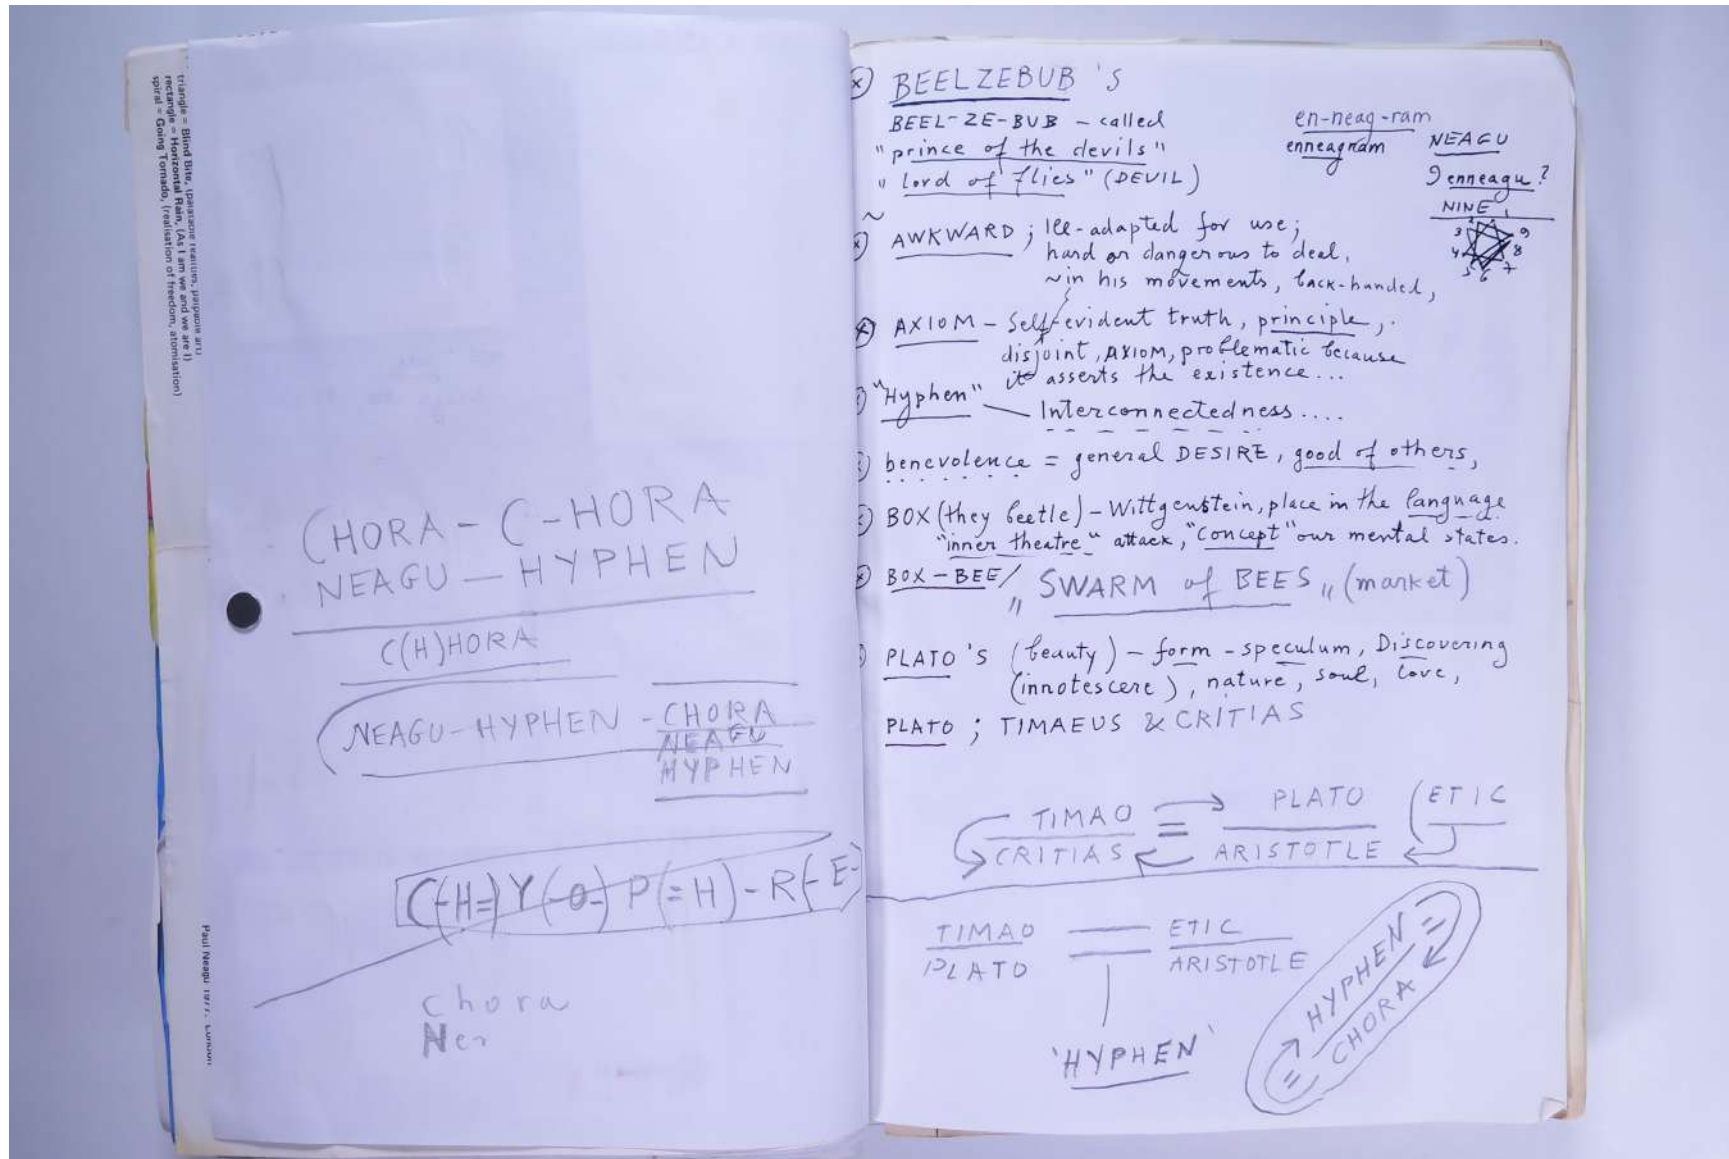 triangle = Blind Bite, (palatable realities, palpable art)
rectangle = Horizontal Rain, (As I am we and we are I)
spiral = Going Tornado, (realisation of freedom, atomisation)
CHORA - C-HORA
NEAGU — HYPHEN
C(H)HORA
NEAGU-HYPHEN - CHORA
NEAGU
HYPHEN
C(-H=)Y(-O-)P(=H)-R(-E-
chora
Paul Neagu 1977. London
BEELZEBUB'S
BEEL-ZE-BUB - called
"prince of the devils"
"lord of flies" (DEVIL)
en-neag-ram
enneagram
NEAGU
9 enneagu?
NINE
1
2
3
4
5
6
7
8
9
~
AWKWARD; ill-adapted for use;
hard or dangerous to deal,
~in his movements, back-handed,
AXIOM - Self-evident truth, principle,
disjoint, AXIOM, problematic because
it asserts the existence...
"Hyphen" — Interconnectedness....
benevolence = general DESIRE, good of others,
BOX (they beetle) - Wittgenstein, place in the language
"inner theatre" attack, "Concept" our mental states.
BOX-BEE/ "SWARM of BEES" (market)
PLATO'S (beauty) - form - speculum, Discovering
(innotescere), nature, soul, love,
PLATO; TIMAEUS & CRITIAS
TIMAO = PLATO (ETIC
CRITIAS ARISTOTLE
TIMAO = ETIC
PLATO ARISTOTLE
'HYPHEN'
= HYPHEN =
= CHORA